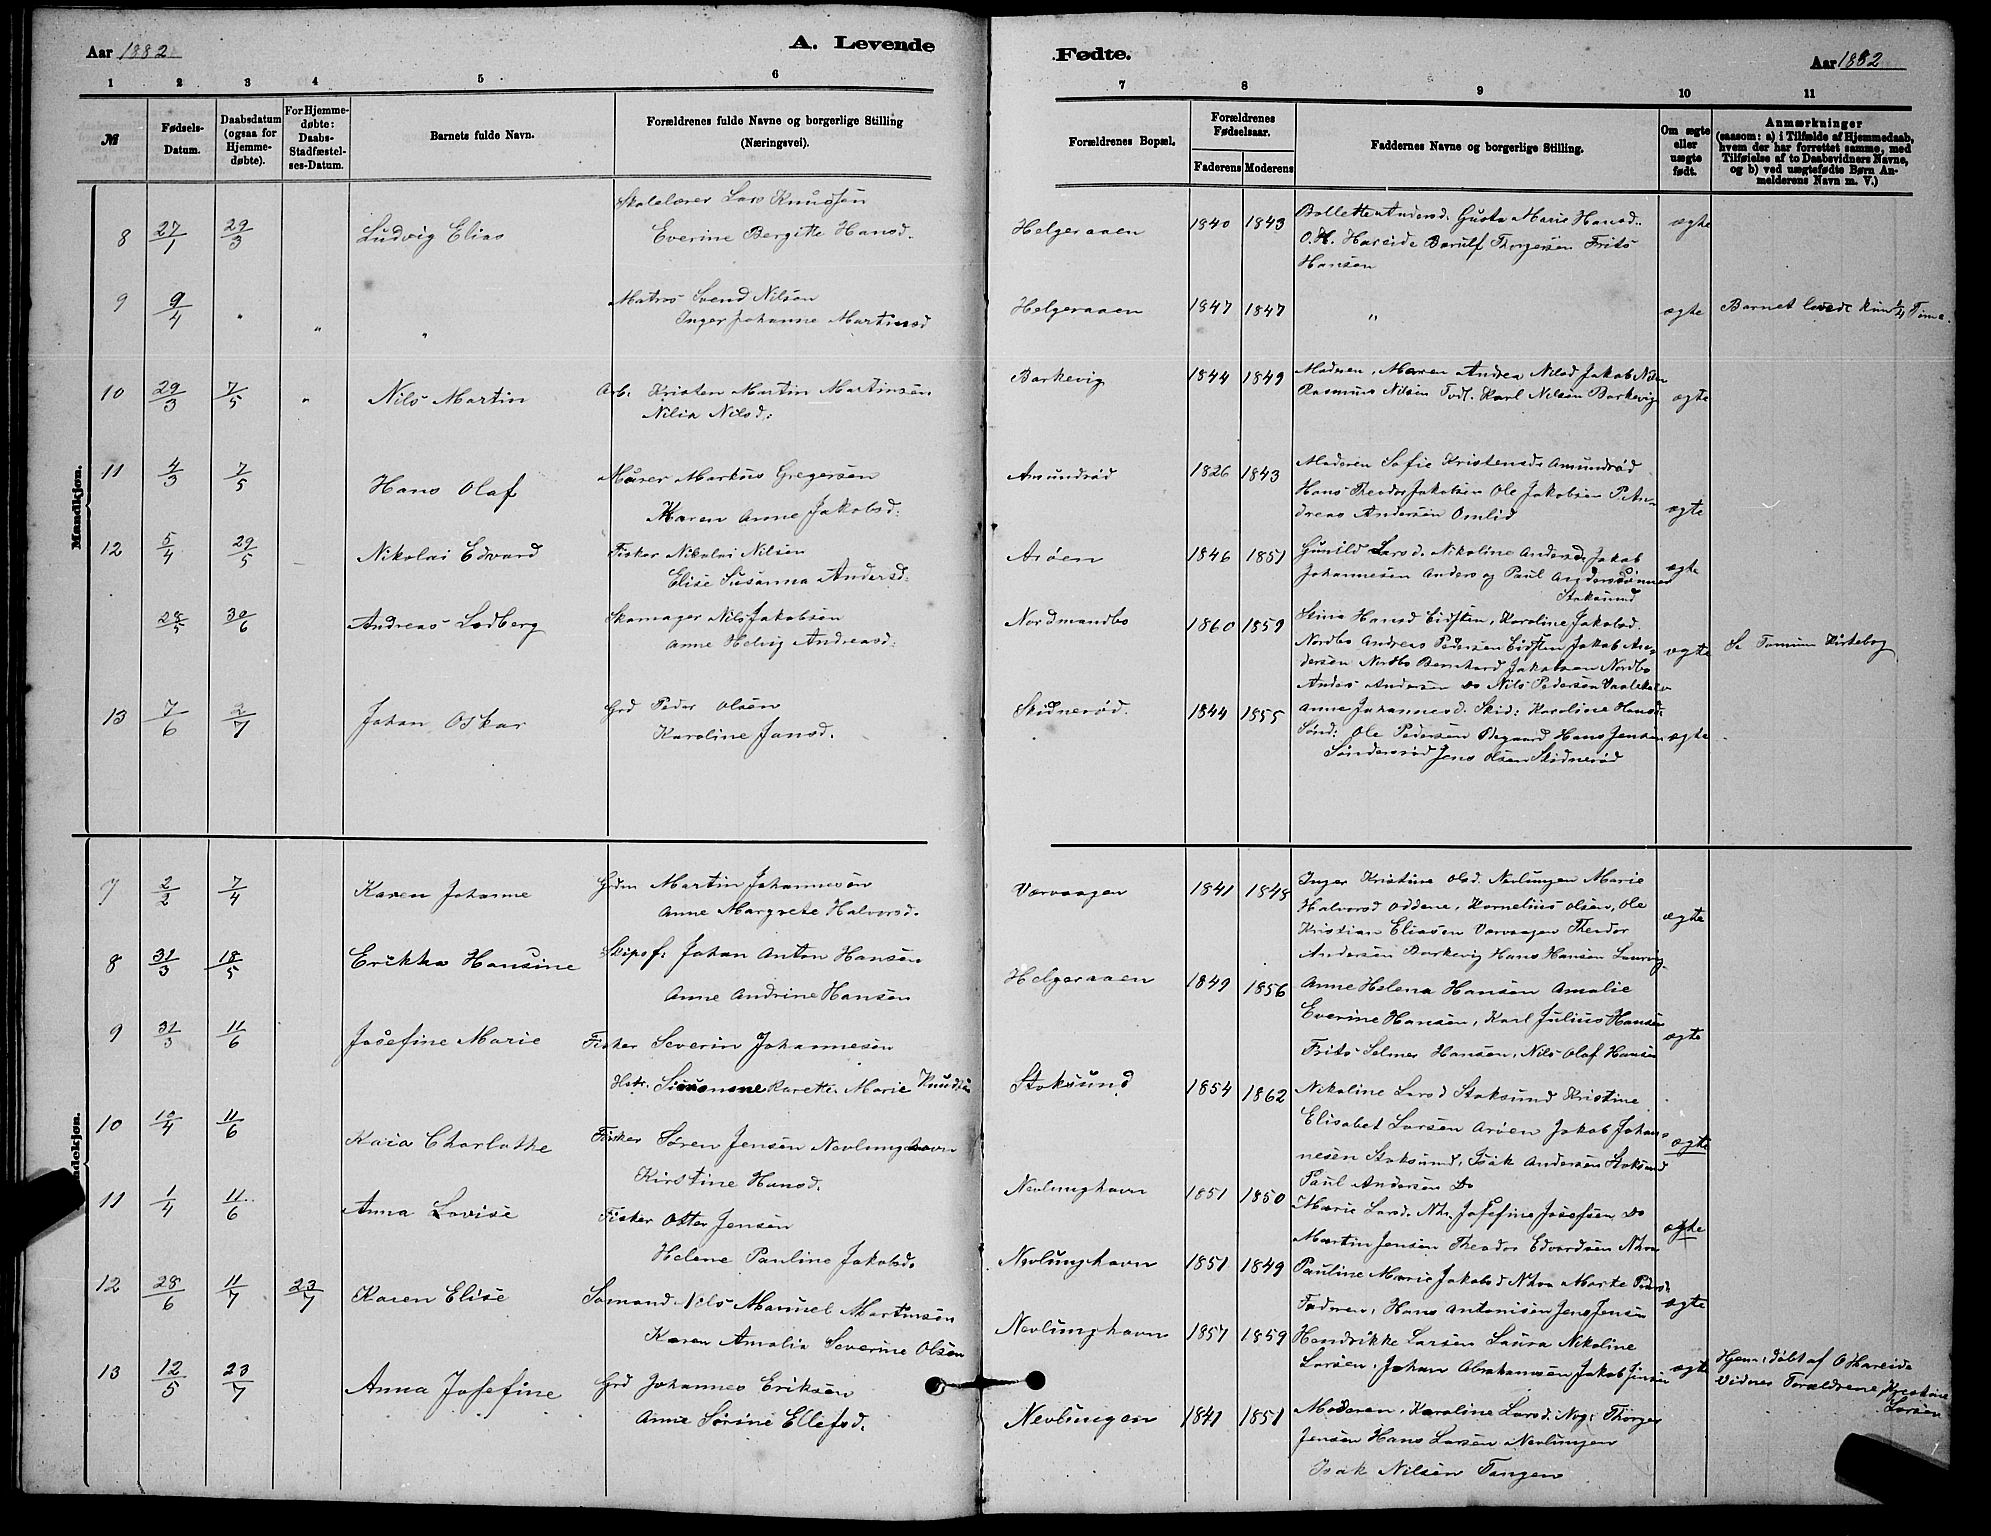 Aar 1882
A. Levende
Fødte.
Aar 1882
1 2 3 4 5 6 7 8 9 10 11
№
Fødsels-Datum.
Daabsdatum (ogsaa for Hjemme-døbte).
For Hjemme-døbte: Daabs-Stadfæstel-ses-Datum.
Barnets fulde Navn.
Forældrenes fulde Navne og borgerlige Stilling
(Næringsvei).
Forældrenes Bopæl.
Forældrenes Fødselsaar.
Faderens Moderens
Faddernes Navne og borgerlige Stilling.
Om ægte eller uægte født.
Anmærkninger
(saasom: a) i Tilfælde af Hjemmedaab,
hvem der har forrettet samme, med
Tilføielse af to Daabsvidners Navne,
og b) ved uægtefødte Børn An-
melderens Navn m. V.)
Mandkjøn.
8 27/1 29/3 Ludvig Elias
Skolelærer Lars Knudsen
Everine Bergitte Hansd.
Helgeraaen 1840 1843
Bollette Andersd. Gusta Marie Hansd.
O.H. Hareide Børulf Thorgersen Frits
Hansen
ægte
9 9/4 " " "
Matros Svend Nilsen
Inger Johanne Martinsd
Helgeraaen 1847 1847 " ægte
Barnet levede kun 1/4 Time.
10 29/3 7/5 " Nils Martin
Arb. Kristen Martin Martinsen
Nilia Nilsd.
Barkevig 1844 1849
Moderen, Maren Andrea Nilsd Jakob Nilsn
Rasmus Nilsen Tvdl. Karl Nilsen Barkevig
ægte
11 4/3 7/5 Hans Olaf
Murer Markus Gregersen
Maren Anne Jakobsd.
Amundrød 1826 1843
Moderen Sofie Kristensd. Amundrød
Hans Theodor Jakobsen Ole Jakobsen P. An-
dreas Andersen Omlid
ægte
12 5/4 29/5 Nikolai Edvard
Fisker Nikolai Nilsen
Elise Susanna Andersd.
Arøen 1846 1851
Gunild Larsd. Nikoline Andersd. Jakob
Johannesen Anders og Paul Anderssønner
Stoksund
ægte
28/5 30/6 Andreas Lodberg
Skomager Nils Jakobsen
Anne Helvig Andreasd.
Nordmandbo 1860 1859
Stina Hansd Eidsten, Karoline Jakobsd.
Nordbo Andreas Pedersen Eidsten Jakob An-
dersen Nordbo Bernhard Jakobsen Nordbo
Andrs Andersen Do Nils Pedersen
ægte
Se Kirkebog
13 7/6 2/7 Johan Oskar
Grd Peder Olsen
Karoline Jansd.
Skidnerød. 1844 1855
Anne Johannesd. Skid: Karoline Hansd.
Sønd: Ole Pedersen Hans Jensen
Søndersrød Jens Olsen Skidnerød
ægte
Kvindekjøn.
7 2/2 7/4 Karen Johanne
Grdm Martin Johannesen
Anne Margrete Halvorsd.
Varvaagen 1841 1848
Inger Kristine Olsd. Nevlungen Marie
Halvorsd Oddene, Kornelius Olsen, Ole
Kristian Eliasen Varvaagen Theodor
Andersen Barkevig Hans Hansen Laurvig
ægte
8 31/3 18/5 Erikka Hansine
Skipsf. Johan Anton Hansen
Anne Andrine Hansen
Helgeraaen 1849 1856
Anne Helena Hansen Amalie
Everine Hansen, Karl Julius Hansen
Frits Selmer Hansen, Nils Olaf Hansen
ægte
9 31/3 11/6 Josefine Marie
Fisker Severin Johannesen
Hstr. Simonne Karette Marie Knudsen
Stoksund 1854 1862
Nikoline Larsd Stoksund Kristine
Elisabet Larsen Arøen Jakob Johan-
nesen Stoksund, Isak Andersen Stoksund
Paul Andersen Do
ægte
10 10/4 11/6 Kaia Charlothe
Fisker Søren Jensen Nevlunghavn
Kirstine Hansd.
Nevlunghavn 1851 1850
Marie Larsd. Nhv. Josefine Josefsen Do
Martin Jensen Theodor Edvardsen Nhvn
ægte
11 1/4 11/6 Anna Lovise
Fisker Otter Jensen
Helene Pauline Jakobsd.
Nevlunghavn 1851 1849
Pauline Marie Jakobsd Nhvn Marte Pedersd.
Faderen, Hans Antonisen Jens Jensen
ægte
12 28/6 11/7 23/7 Karen Elise
Sømand Nils Manuel Martinsen
Karen Amalia Severine Olsen
Nevlunghavn 1857 1859
Hendrikke Larsen Laura Nikoline
Larsen, Johan Abrahamsen Jakob Jensen
ægte
Hjem.døbt af O Hareide
Vidner Forældrene, Kristine
Larsen
13 12/5 23/7 Anna Josefine
Grd Johannes Eriksen
Anne Sørine Ellefsd.
Nevlungen 1841 1851
Moderen, Karoline Larsd. Thorger
Jensen Hans Larsen Nevlungen
Isak Nilsen Tangen